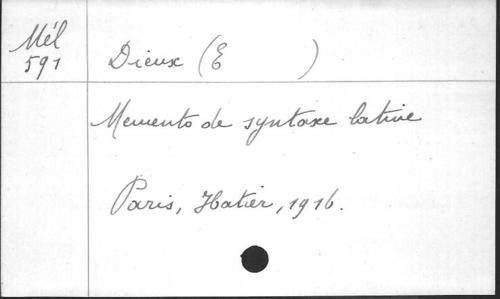 Mél
591
Dieux (E )
Memento de syntaxe latine
Paris, Hatier, 1916.